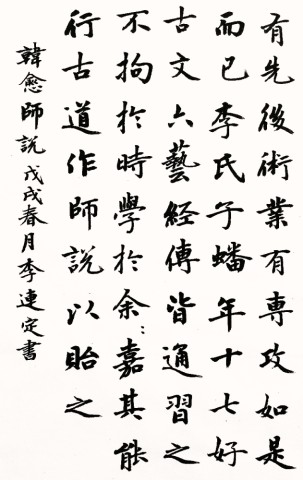 有先後術業有専攻如是
而已李氏子蟠年十七好
古文六藝經傳皆通習之
不拘於時學於余:嘉其能
行古道作師説以貽之
韓愈師説戊戌春月李連定書